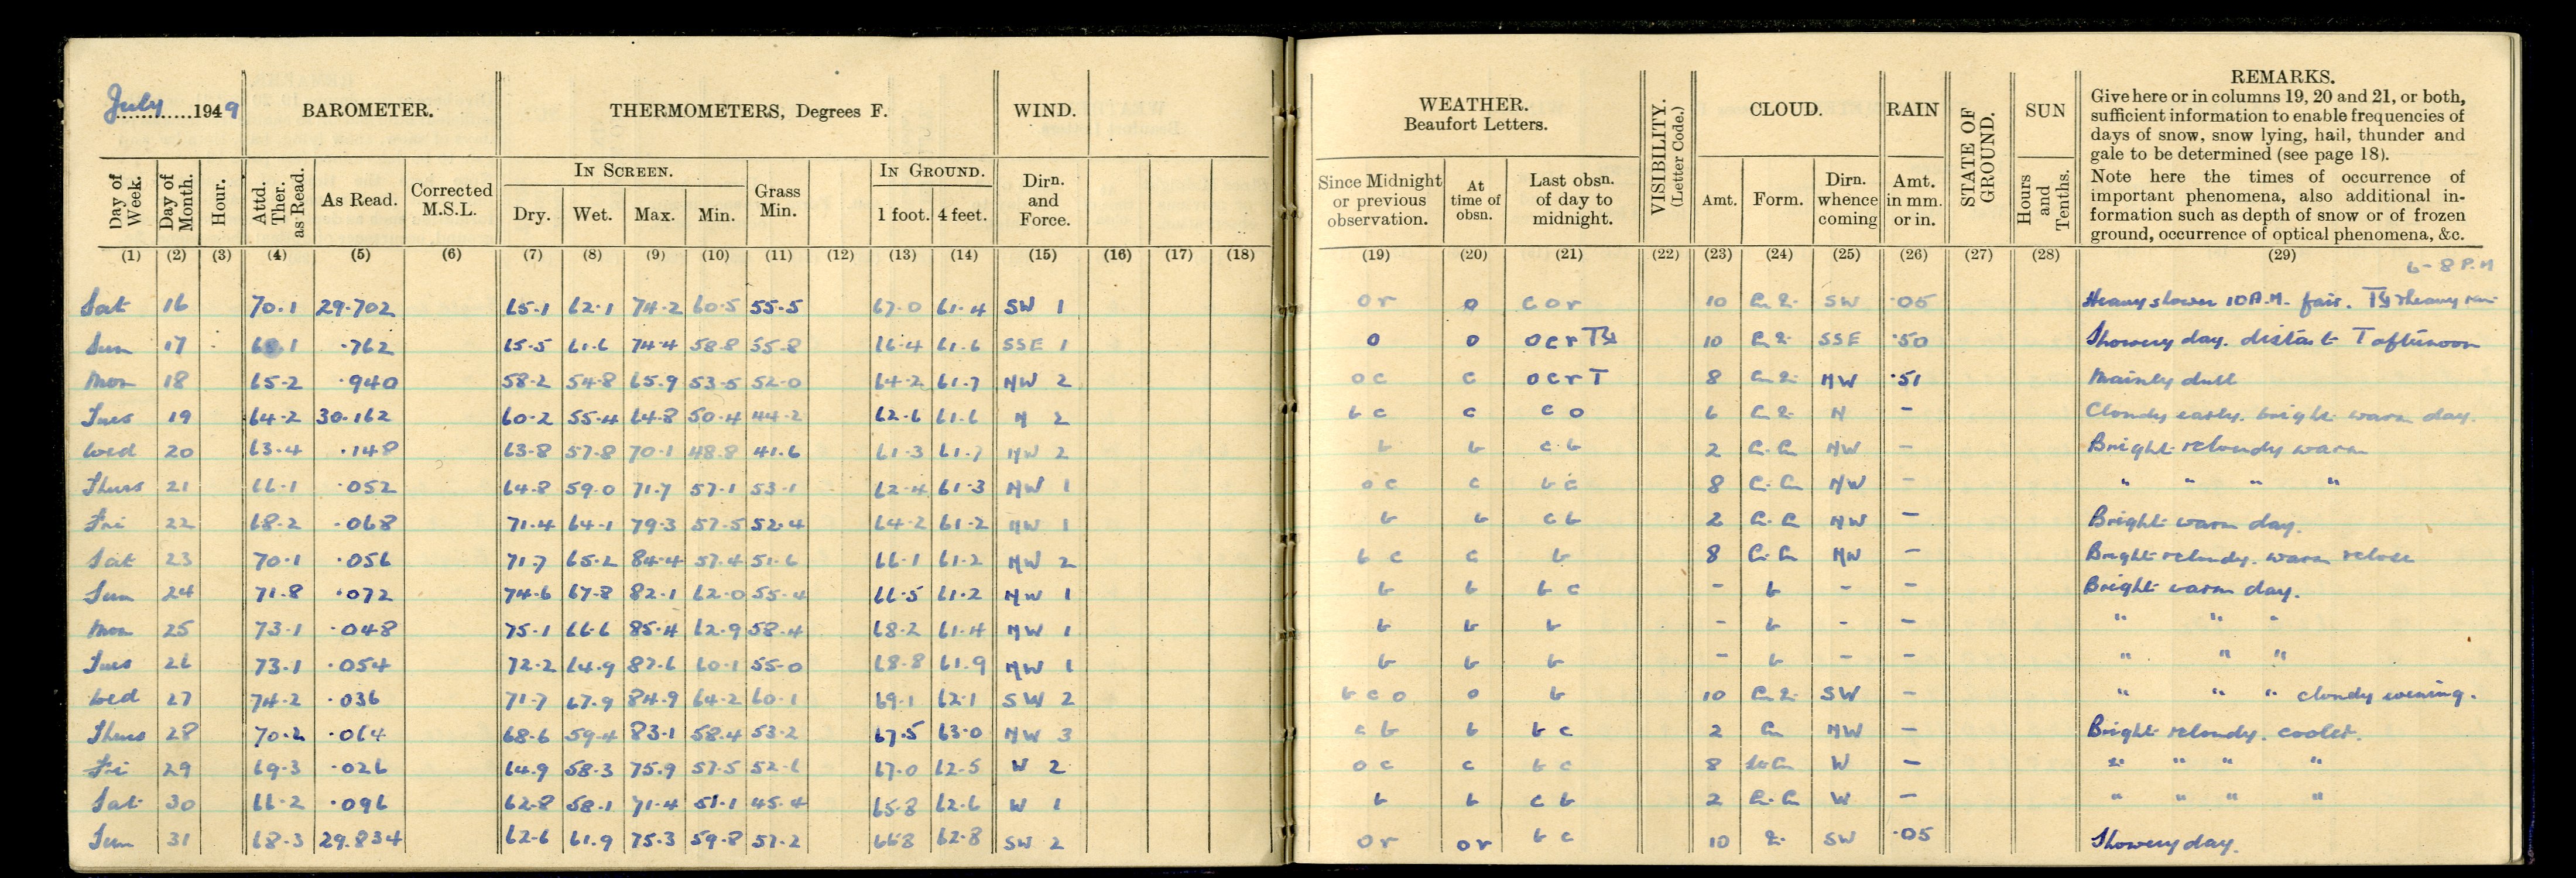 July 1949 BAROMETER. THERMOMETERS, Degrees F. WIND. WEATHER. Beaufort Letters. VISIBILITY. (Letter Code.) CLOUD. RAIN STATE OF GROUND. SUN REMARKS.
Give here or in columns 19, 20 and 21, or both,
sufficient information to enable frequencies of
days of snow, snow lying, hail, thunder and
gale to be determined (see page 18).
Note here the times of occurrence of
important phenomena, also additional in-
formation such as depth of snow or of frozen
ground, occurrence of optical phenomena, &c.
IN SCREEN. IN GROUND.
Day of Week. Day of Month. Hour. Attd. Ther. as Read. As Read. Corrected M.S.L. Dry. Wet. Max. Min. Grass Min. 1 foot. 4 feet. Dirn. and Force. Since Midnight or previous observation. At time of obsn. Last obsn. of day to midnight. Amt. Form. Dirn. whence coming Amt. in mm. or in. Hours and Tenths.
(1) (2) (3) (4) (5) (6) (7) (8) (9) (10) (11) (12) (13) (14) (15) (16) (17) (18) (19) (20) (21) (22) (23) (24) (25) (26) (27) (28) (29)
6-8 P.M
Sat 16 70.1 29.702 65.1 62.1 74.2 60.5 55.5 67.0 61.4 SW 1 o r o c o r 10 SW .05 Heavy shower 10 A.M. fair. heavy rain
Sun 17 .762 65.5 61.6 74.4 58.8 55.8 66.4 61.6 SSE 1 o o o c r 10 SSE .50 Showery day. distant T afternoon
Mon 18 65.2 .940 58.2 54.8 65.9 53.5 52.0 64.2 61.7 NW 2 o c c o c r T 8 NW .51 Mainly dull
Tues 19 64.2 30.162 60.2 55.4 64.8 50.4 44.2 62.6 61.6 N 2 b c c c o 6 N - Cloudy early. bright warm day.
Wed 20 63.4 .148 63.8 57.8 70.1 48.8 41.6 61.3 61.7 NW 2 b b c b 2 NW - Bright & cloudy warm
Thurs 21 66.1 .052 64.8 59.0 71.7 57.1 53.1 62.4 61.3 NW 1 o c c b c 8 NW - " " " "
Fri 22 68.2 .068 71.4 64.1 79.3 57.5 52.4 64.2 61.2 NW 1 b b c b 2 NW - Bright warm day.
Sat 23 70.1 .056 71.7 65.2 84.4 57.4 51.6 66.1 61.2 NW 2 b c c b 8 NW - Bright & cloudy. warm & close
Sun 24 71.8 .072 74.6 67.8 82.1 62.0 55.4 66.5 61.2 NW 1 b b b c - b - - Bright warm day.
Mon 25 73.1 .048 75.1 66.6 85.4 62.9 58.4 68.2 61.4 NW 1 b b b - b - - " " "
Tues 26 73.1 .054 72.2 64.9 82.6 60.1 55.0 68.8 61.9 NW 1 b b b - b - - " " "
Wed 27 74.2 .036 71.7 67.9 84.9 64.2 60.1 69.1 62.1 SW 2 b c o o b 10 SW - " " " cloudy evening.
Thurs 28 70.2 .064 68.6 59.4 83.1 58.4 53.2 67.5 63.0 NW 3 c b b b c 2 NW - Bright & cloudy. cooler.
Fri 29 69.3 .026 64.9 58.3 75.9 57.5 52.6 67.0 62.5 W 2 o c c b c 8 W - " " " "
Sat 30 66.2 .096 62.8 58.1 71.4 51.1 45.4 65.8 62.6 W 1 b b c b 2 W - " " " "
Sun 31 68.3 29.834 62.6 61.9 75.3 59.8 57.2 66.8 62.8 SW 2 o r o r b c 10 SW .05 Showery day.